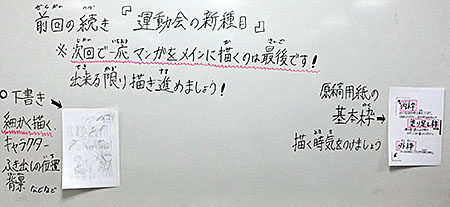 前回の続き『運動会の新種目』
※次回で一応マンガをメインに描くのは最後です!
出来る限り描き進めましょう!
○下書き
細かく描く
キャラクター
ふき出しの位置
背景 などなど
原稿用紙の
基本枠→
描く時気をつけましょう
内枠
外枠